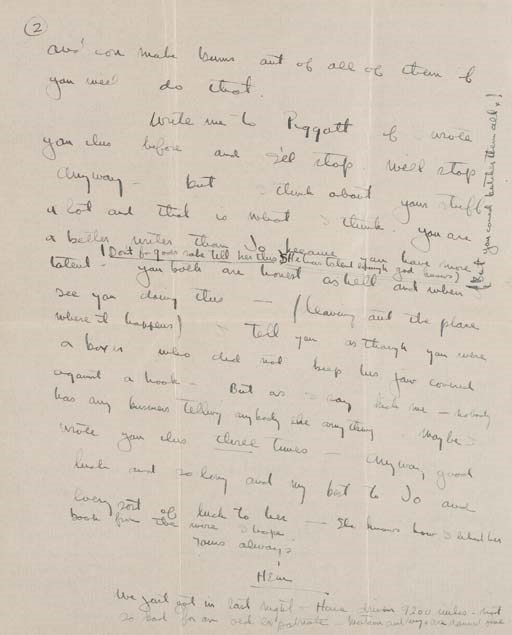 2
and can make bums out of all of them if
you will do that.
Write me to Piggott if I wrote
you this before and I'll stop will stop
anyway - but I think about your stuff
a lot and that is what I think. You are
a better writer than Jo because you have more
(Don't for gods sake tell her this She has talent enough god knows)
talent - you both are honest as hell and when
(But you could butcher them all!)
see you doing this - (leaving out the place
where it happens) I tell you as though you were
a boxer who did not keep his jaw covered
against a hook - But as I say kick me - nobody
has any business telling anybody else anything. Maybe I
wrote you this three times - Anyway good
luck and so long and my best to Jo and
every sort of luck to her - She knows how I what her
book from the wire I hope
Yours always
Hem
We just got in last night - Have driven 9200 miles - not
so bad for an old expatriate -